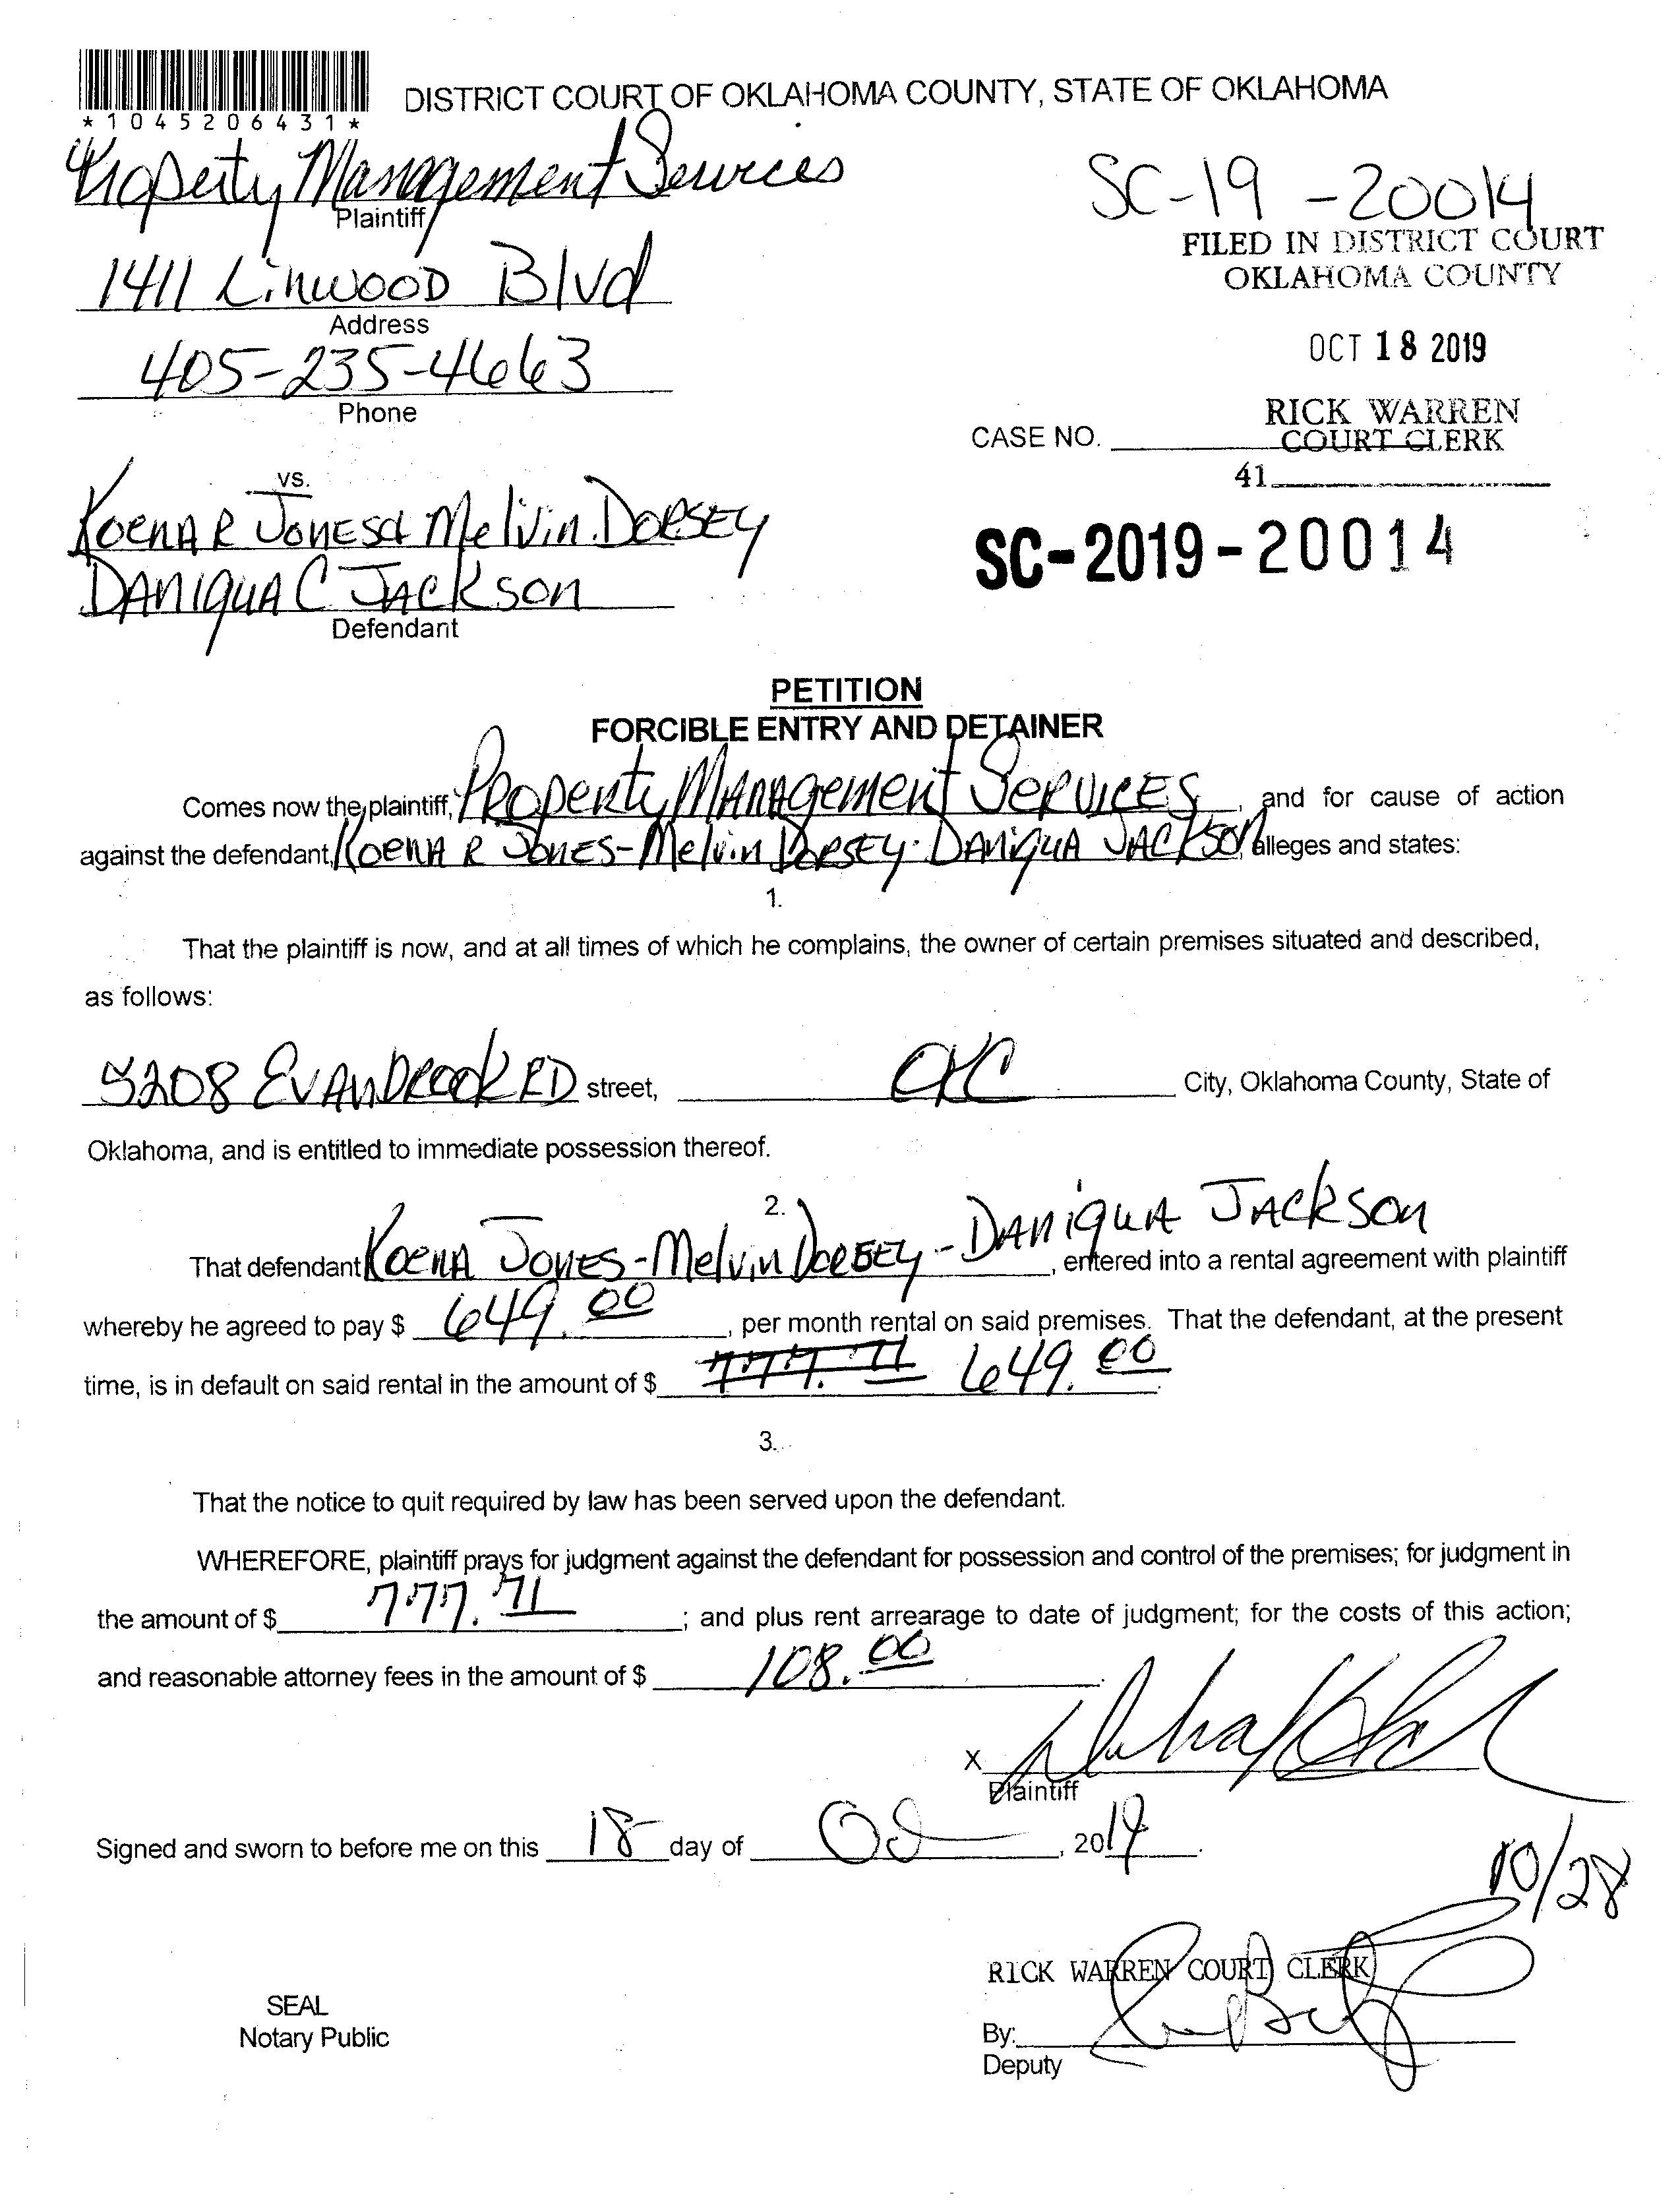 DISTRICT COURT OF OKLAHOMA COUNTY, STATE OF OKLAHOMA
*1045206431*
Property Management Services
Plaintiff
SC-19-20014
FILED IN DISTRICT COURT
OKLAHOMA COUNTY
1411 Linwood Blvd
Address
OCT 18 2019
405-235-4663
Phone
RICK WARREN
CASE NO. COURT CLERK
41
vs.
Koena R Jones & Melvin Dorsey
Daniqua C Jackson
Defendant
SC-2019-20014
PETITION
FORCIBLE ENTRY AND DETAINER
Comes now the plaintiff, Property Management Services, and for cause of action
against the defendant, Koena R Jones-Melvin Dorsey-Daniqua Jackson, alleges and states:
1.
That the plaintiff is now, and at all times of which he complains, the owner of certain premises situated and described,
as follows:
5208 Evanbrook RD street, OKC City, Oklahoma County, State of
Oklahoma, and is entitled to immediate possession thereof.
2.
That defendant Koena Jones-Melvin Dorsey-Daniqua Jackson, entered into a rental agreement with plaintiff
whereby he agreed to pay $ 649.00, per month rental on said premises. That the defendant, at the present
time, is in default on said rental in the amount of $ 777.71 649.00.
3.
That the notice to quit required by law has been served upon the defendant.
WHEREFORE, plaintiff prays for judgment against the defendant for possession and control of the premises; for judgment in
the amount of $ 777.71; and plus rent arrearage to date of judgment; for the costs of this action;
and reasonable attorney fees in the amount of $ 108.00.
X
Plaintiff
Signed and sworn to before me on this 18 day of Oct, 2019.
10/28
RICK WARREN COURT CLERK
SEAL
Notary Public
By:
Deputy